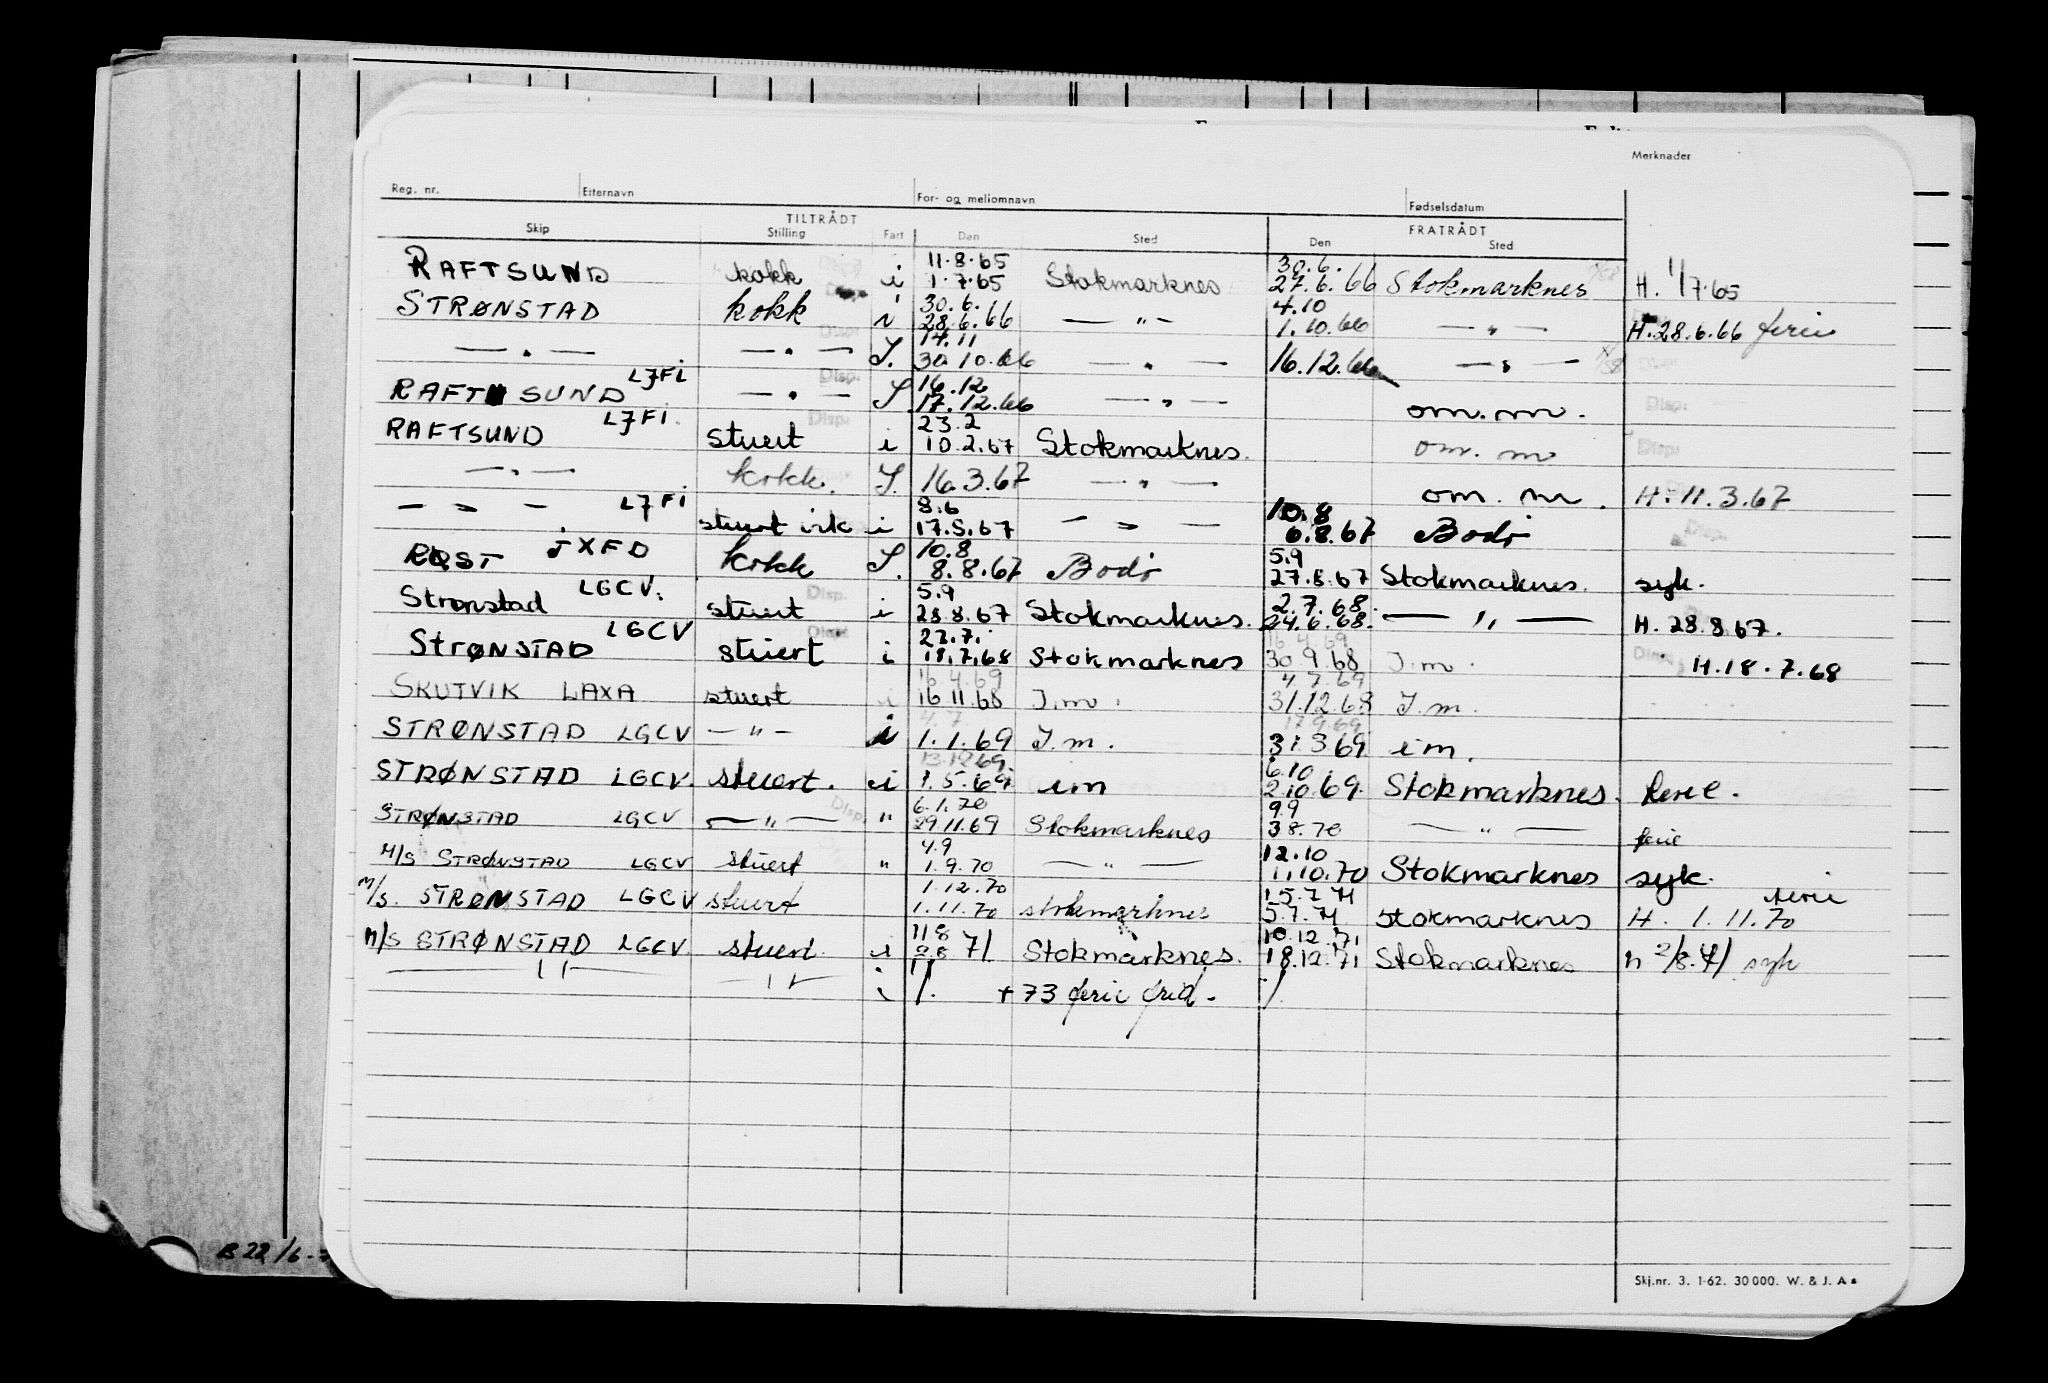 Merknader
Reg. nr. Etternavn For- og mellomnavn Fødselsdatum
TILTRÅDT FRATRÅDT
Skip Stilling Fart Den Sted Den Sted
11.8.65 30.6.
RAFTSUND kokk i 1.7.65 Stokmarknes 27.6.66 Stokmarknes H. 1/7.65
30.6. 4.10
STRØNSTAD kokk i 28.6.66 — " — 1.10.66 — " — H. 28.6.66 ferie
14.11
— " — — " — S. 30.10.66 — " — 16.12.66 — " —
16.12
RAFTSUND LJFI — " — S 17.12.66 — " — om.m.
23.2
RAFTSUND LJFI. stuert i 10.2.67 Stokmarknes. om. m
— " — kokk. S. 16.3.67 — " — om. m. H. 11.3.67
8.6 10.8
— " — LJFI stuert vik i 17.5.67 — " — 6.8.67 Bodö
10.8 5.9
RØST JXFD kokk S. 8.8.67 Bodö 27.8.67 Stokmarknes. syk.
5.9 2.7.68.
Strønstad LGCV. stuert i 28.8.67 Stokmarknes. 24.6.68. — " — H. 28.8.67.
22.7. 16.4.69
STRØNSTAD LGCV stuert i 18.7.68 Stokmarknes 30.9.68 I.m. H.18.7.68
16.4.69 4.7.69
SKUTVIK LAXA stuert i 16.11.68 I.m. 31.12.68 I.m.
4.7. 17.9.69
STRØNSTAD LGCV — " — i 1.1.69 I.m. 31.3.69 i m.
13.12.69 6.10
STRØNSTAD LGCV. stuert. i 1.5.69 i m 2.10.69. Stokmarknes. ferie.
6.1.70 9.9
STRØNSTAD LGCV — " — " 29.11.69 Stokmarknes 3.8.70 — " — ferie
4.9 12.10
M/S STRØNSTAD LGCV stuert " 1.9.70 — " — 1.10.70 Stokmarknes syk.
1.12.70 15.7.71 ferie
M/S. STRØNSTAD LGCV stuert 1.11.70 stokmarknes 5.7.71 Stokmarknes H. 1.11.70
11.8 10.12.71
M/S STRØNSTAD LGCV. stuert. i 2.8 71 Stokmarknes. 18.12.71 Stokmarknes h 2/8.71 syk
— " — — " — i /. + 73 ferie frid. /.
B 22/6.
Skj.nr. 3. 1-62. 30 000. W. & J. A s